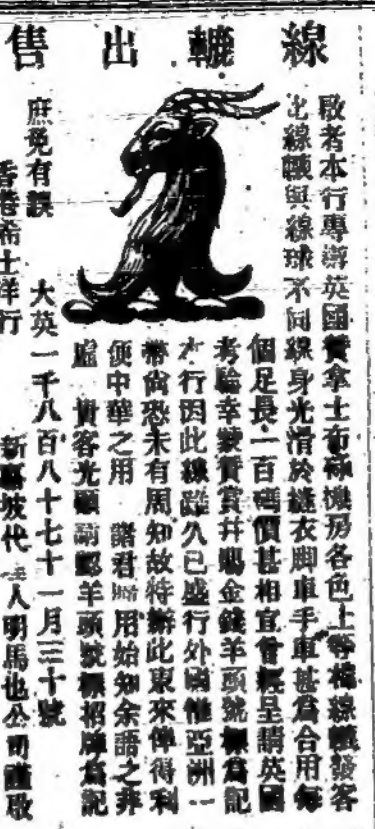 線轆出售
啟者本行專辦英國賓拿士布秘機房各色上等棧線轆發客
此線轆與線球不同線身光滑於縫衣脚車手車甚為合用每
個足長一百碼價甚相宜曾經呈請英國
考驗幸蒙賞賞并賜金錢羊頭號標為記
本行因此線雖久已盛行外國惟亞洲一
帶尚恐未有周知故特辦此東來俾得利
便中華之用 諸君 用始知余語之非
虛 貴客光顧請認羊頭號標招牌為記
庶免有誤 大英一千八百八十七十一月三十號
香港希士洋行 新嘉坡代 人明馬也公司謹啟